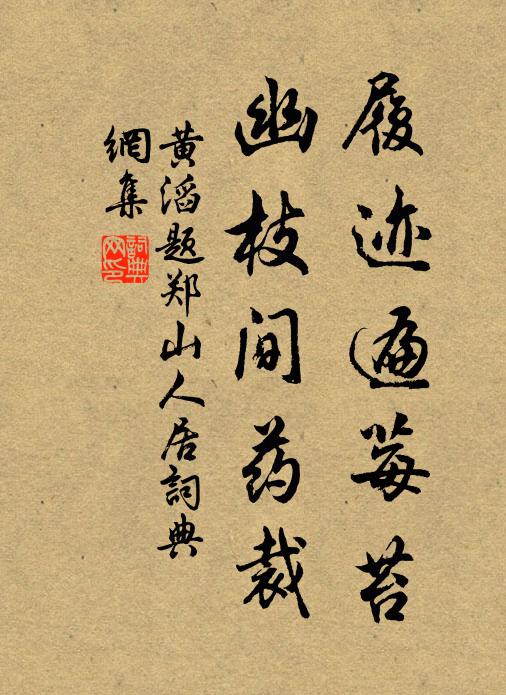 履迹遍莓苔
幽枝间药裁
黄滔题郑山人居詞典
網集
詞典网印